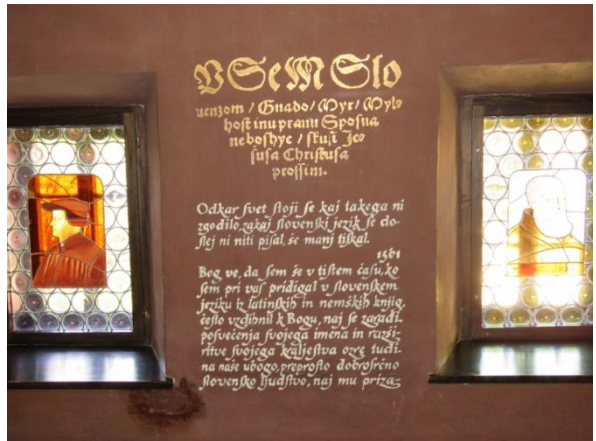 VSeM Slo
venzom / Gnado / Myr / Mylo
host inu pravu Sposna
ne boshye / skuſi Je⸗
ſuſa Chriſtuſa
proſſim.
Odkar ſvet ſtoji ſe kaj takega ni
zgodilo, zakaj ſlovenſki jezik ſe do⸗
ſlej ni niti piſal, še manj tiſkal.
1561
Bog ve, da ſem že v tiſtem čaſu, ko
ſem pri vaſ pridigal v ſlovenſkem
jeziku iz latinſkih in nemſkih knjig,
čeſto vzdihnil k Bogu, naj ſe zaradi
poſvečenja ſvojega imena in razši⸗
ritve ſvojega kraljeſtva ozre tudi
na naše ubogo, preproſto dobroſrčno
ſlovenſko ljudſtvo, naj mu prizа⸗